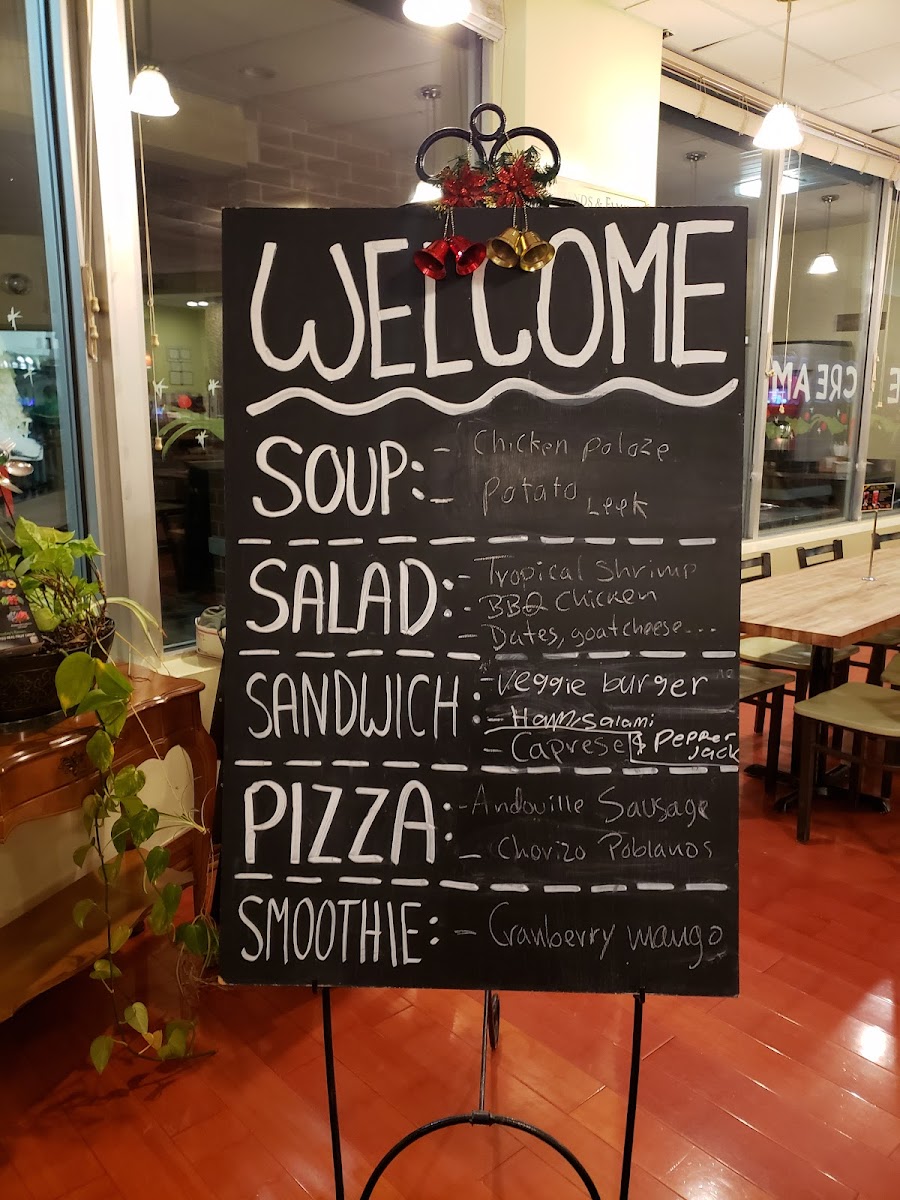 WELCOME
SOUP: - Chicken poloze
- Potato Leek
SALAD: - Tropical Shrimp
- BBQ Chicken
- Dates, goat cheese...
SANDWICH: - Veggie burger
- Ham, Salami
- Caprese & Pepper Jack
PIZZA: - Andouille Sausage
- Chorizo Poblanos
SMOOTHIE: - Cranberry mango
CREAM